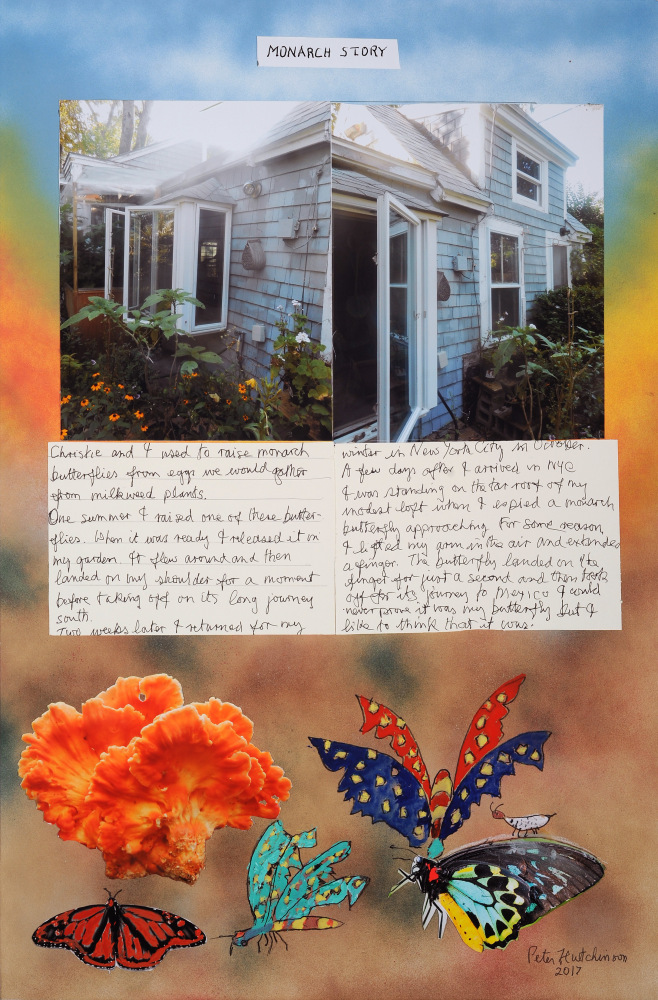 MONARCH STORY
Christie and I used to raise monarch
butterflies from eggs we would gather
from milkweed plants.
One summer I raised one of these butter-
flies. When it was ready I released it in
my garden. It flew around and then
landed on my shoulder for a moment
before taking off on its long journey
south.
Two weeks later I returned for my
winter in New York City in October.
A few days after I arrived in NYC
I was standing on the tar roof of my
modest loft when I espied a monarch
butterfly approaching. For some reason
I lifted my arm in the air and extended
a finger. The butterfly landed on the
finger for just a second and then took
off for its journey to Mexico I could
never prove it was my butterfly but I
like to think that it was.
Peter Hutchinson
2017